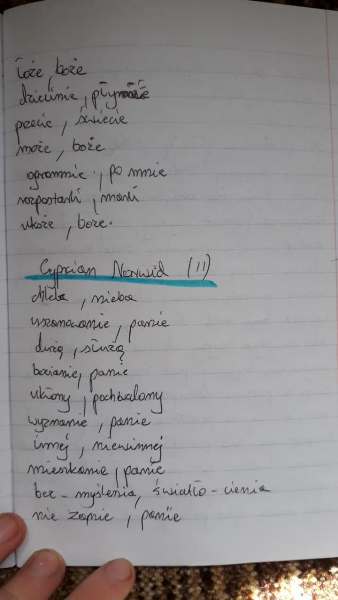 łoże, boże
dziecinie, płynie
przecie, świecie
może, boże
ogromnie, po mnie
rozpostarli, marli
ukoże, boże.
Cyprian Norwid (11)
chleba, nieba
uszanowanie, panie
dużą, służą
bocianie, panie
ukłony, pochwalony
wyznanie, panie
innej, niewinnej
mieszkanie, panie
bez-myślenia, światło-cienia
nie zapnie, panie